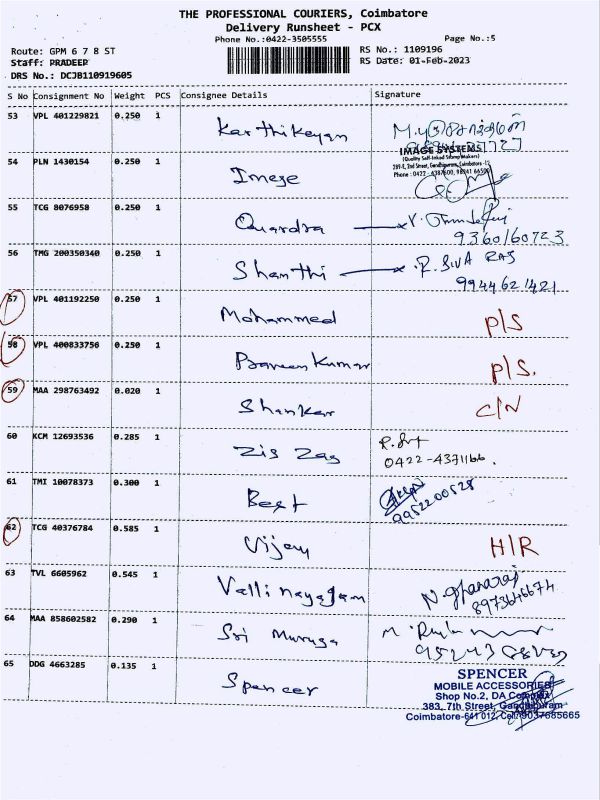 THE PROFESSIONAL COURIERS, Coimbatore
Delivery Runsheet - PCX
Phone No.:0422-3505555
Page No.:5
Route: GPM 6 7 8 ST
RS No.: 1109196
Staff: PRADEEP
RS Date: 01-Feb-2023
DRS No.: DCJB110919605
S No Consignment No Weight PCS Consignee Details Signature
53 VPL 401229821 0.250 1 Karthikeyan
IMAGE SYSTEMS
(Quality Self-Inked Stamp Makers)
54 PLN 1430154 0.250 1 Image
55 TCG 8076958 0.250 1 Quardra
9360160723
56 TMG 200350340 0.250 1 Shanthi R. SIVA RAJ
9944621421
57 VPL 401192250 0.250 1 Mohammed P/S
58 VPL 400833756 0.250 1 Praveen Kumar P/S.
59 MAA 298763492 0.020 1 Shankar C/N
60 KCM 12693536 0.285 1 Zig Zag
0422-4371166.
61 TMI 10078373 0.300 1 Best
9952200528
62 TCG 40376784 0.585 1 Vijay H/R
63 TVL 6605962 0.545 1 Valli nayagam N. Gnanaraj
8973646674
64 MAA 858602582 0.290 1 Sri Muruga
65 DDG 4663285 0.135 1 Spencer
SPENCER
MOBILE ACCESSORIES
Shop No.2, DA Complex
383, 7th Street, Gandhipuram
Coimbatore-641 012, Cell:9037685665